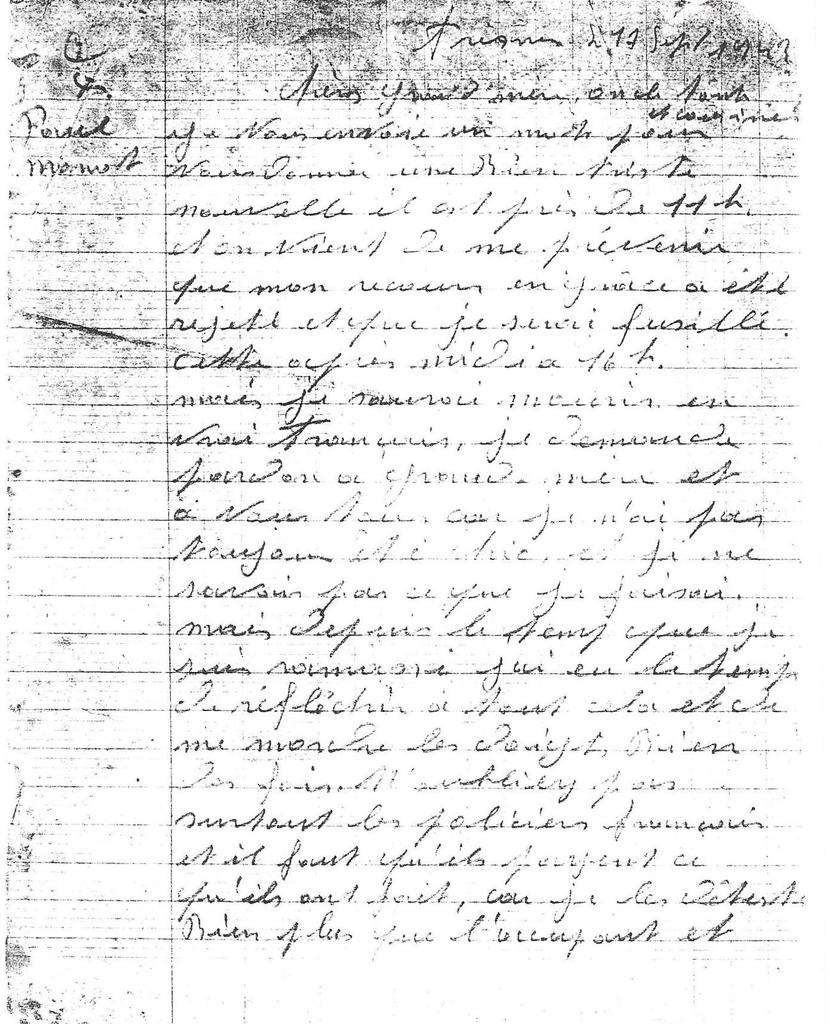 Fresnes le 17 Sept 1943
Chère Grand mère, oncle tante
et cousines
Paul
Je vous envoie un mot pour
vous donner une Bien triste
nouvelle il est près de 11 h.
et on vient de me prévenir
que mon recours en grâce a été
rejeté et que je serai fusillé
cette après midi a 16 h.
mais je saurai mourir en
vrai Français, je demande
pardon a grand-mère et
à vous tous car je n'ai pas
toujour été chic, et je ne
savais pas ce que je faisai.
mais depuis le temp que je
suis ramassé j'ai eu le temp
de réfléchir à tout cela et de
me mordre les doigts Bien
des fois. N'oubliez pas
surtout les policiers français
et il faut qu'ils payent ce
qu'ils ont fait, car je les déteste
Bien plus que l'occupant et